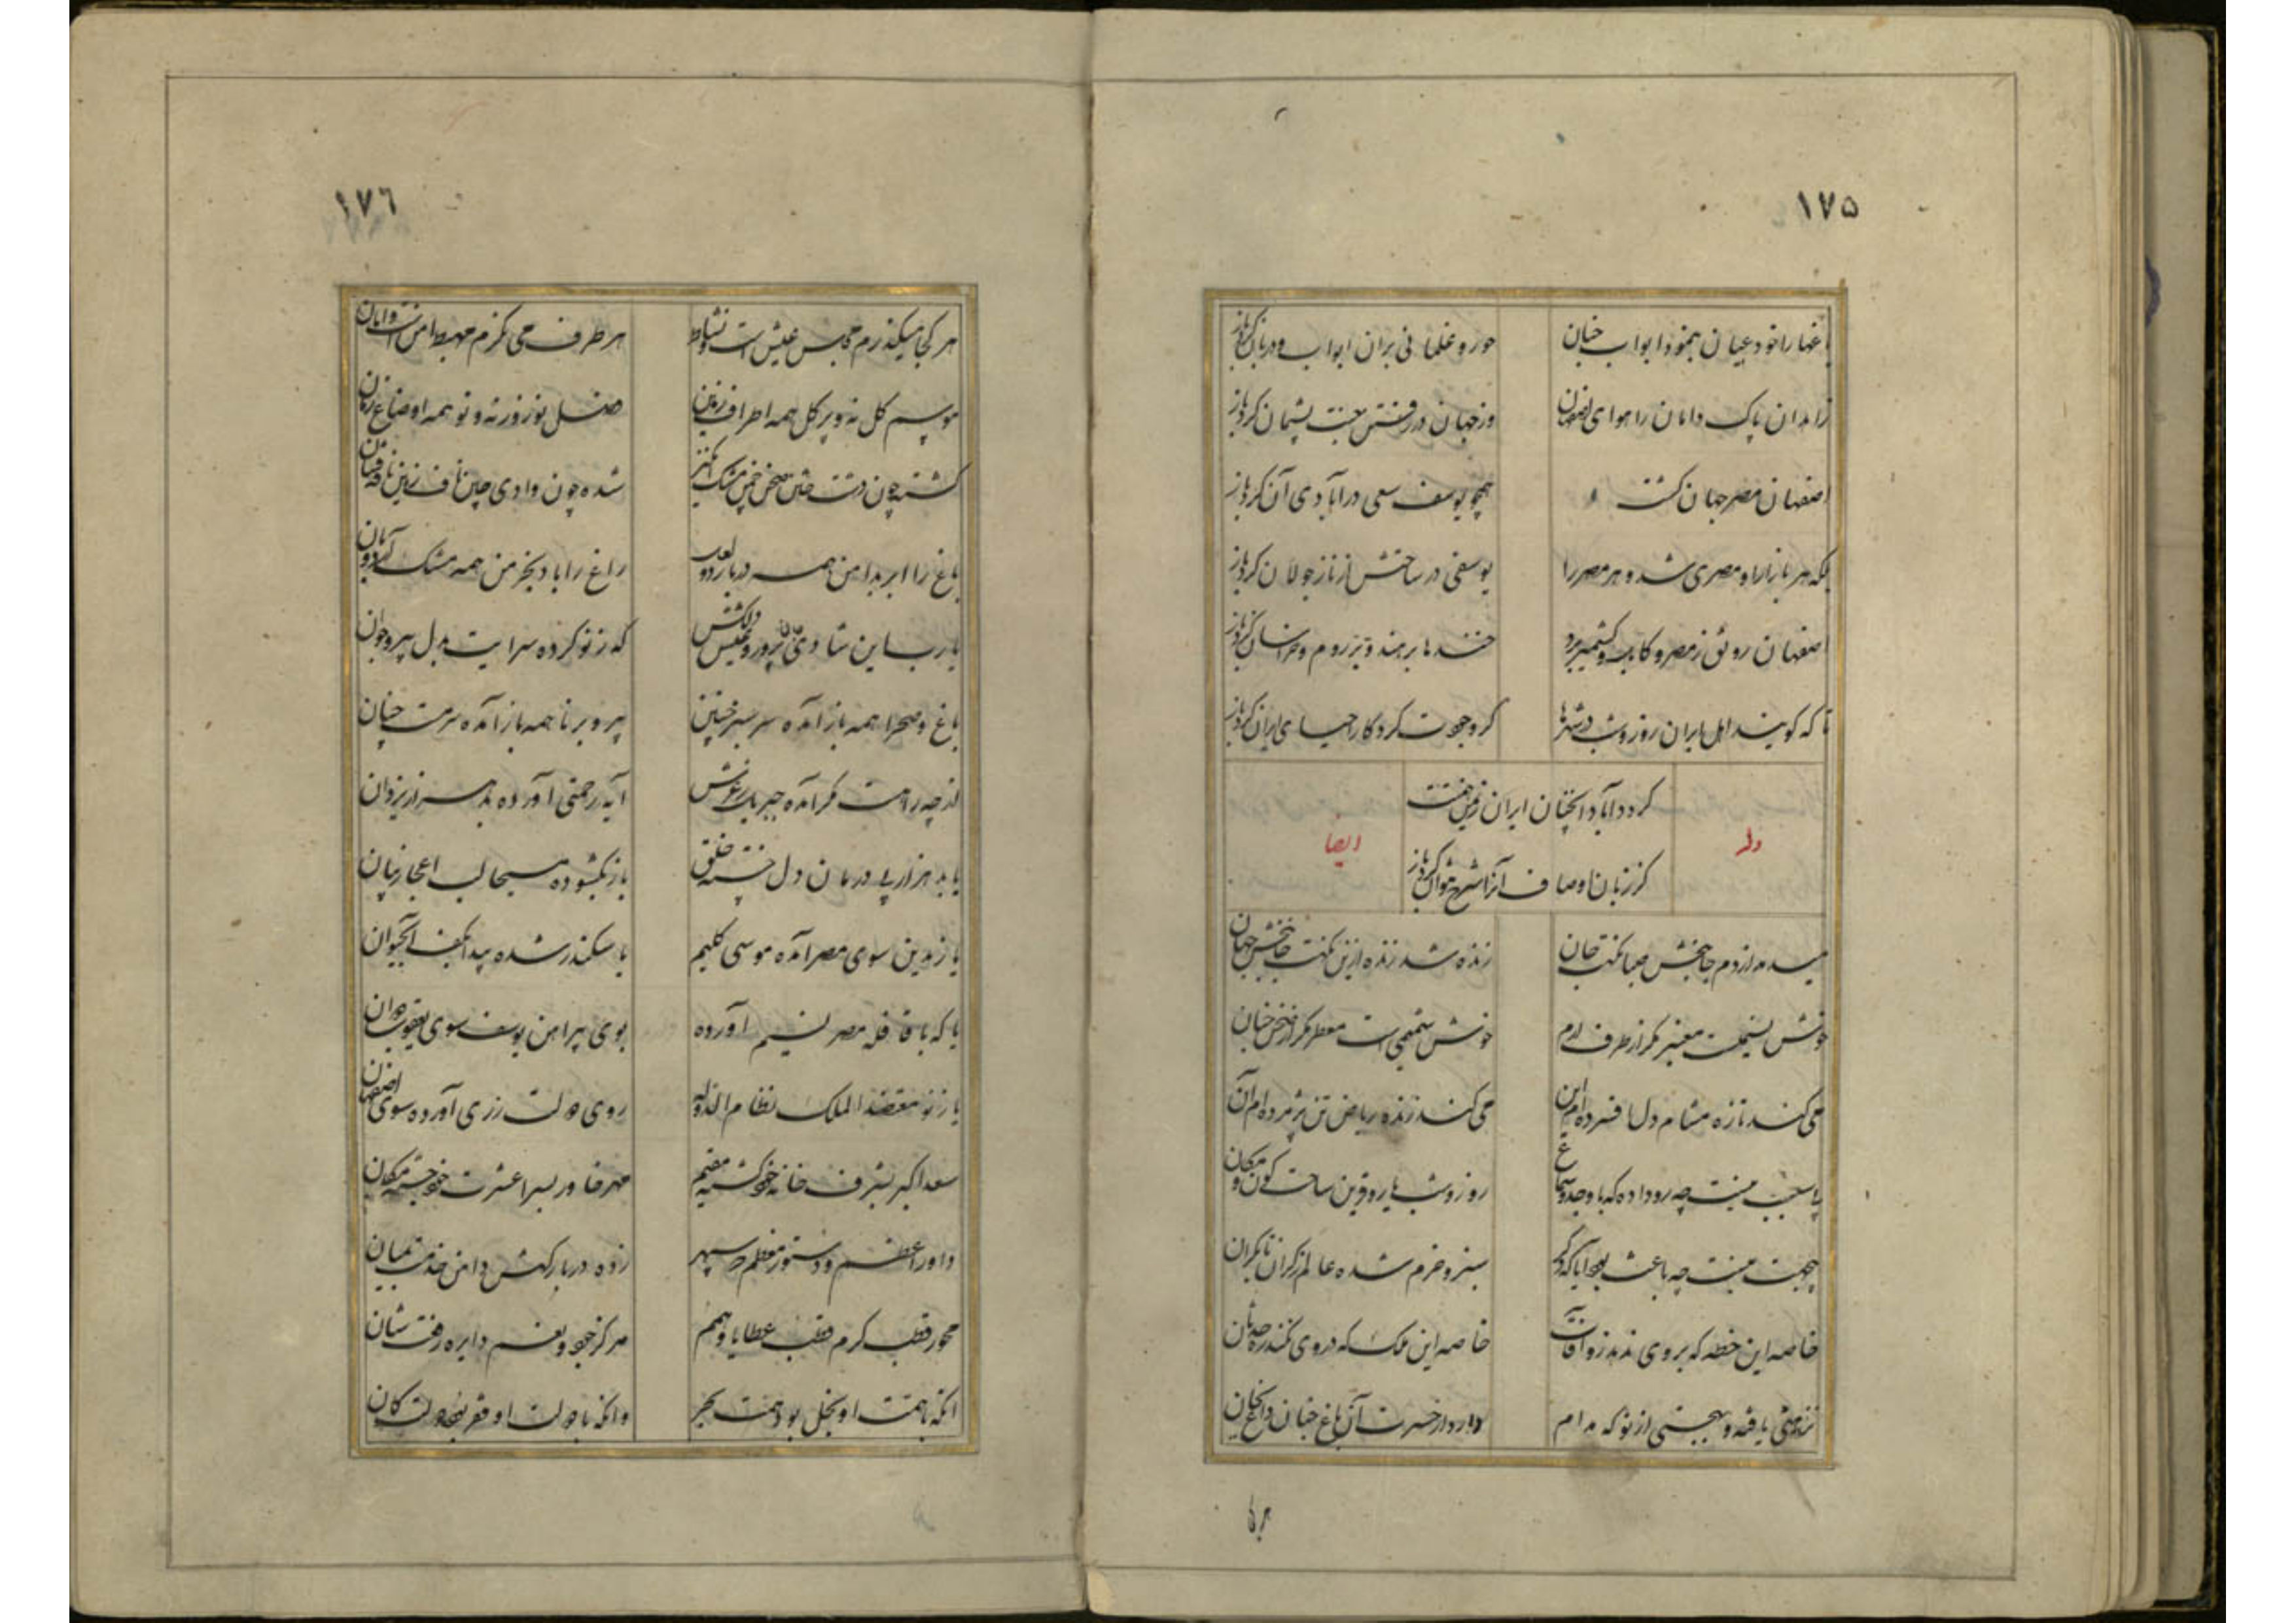 ١٧۵
باغها را خود عیان بنمود ابواب جنان
حور و غلمانی بران ابواب و دربان کرد باز
زاهدان پاک دامان را هوای اصفهان
در رفتن جنت پشیمان کرد باز
اصفهان مصر جهان کشت و
همچو یوسف سعی در آبادی آن کرد باز
بلکه هر بازار او مصری شد و هر مصر را
یوسفی در ساحتش از ناز جولان کرد باز
اصفهان رونق ز مصر و کابل و کشمیر برد
خنده ها بر هند و تبریز و روم و خراسان کرد باز
تا که کویند اهل ایران روز و شب در شهرها
کرد جودت کردکار احیای ایران کرد باز
کرد آباد آنچنان ایران زمین همت
کز زبان اوصاف آنرا شرح نتوان کرد باز
وله
ایضا
میدمد از دم جانبخش صبا نکهت جان
زنده شد زنده ازین نکهت جانبخش جهان
خوش نسیمیست معنبر مکر از طرف ارم
خوش شمیمی است معطر مکر از صحن جنان
می کند تازه مشام دل افسرده ام این
می کند زنده ریاض تن پژمرده ام آن
یا سبب چیست چه رو داده که با وجد و سماع
روز و شب یار و قرین ساحت کون و مکان
چه جهت چیست چه باعث بود آیا که دکر
سبز و خرم شده عالم ز کران تا بکران
خاصه این خطه که بر وی ندمد زو آفات
خاصه این ملک که در وی نکند ره حدثان
نزهتی یافته و بهجتی از نو که مدام
دارد از حسرت آن باغ جنان داغ بجان
هر کجا
١٧٦
هر کجا میکذرم مجلس عیش است و نشاط
هر طرف می نکرم مهبط امن است و امان
موسم کل نه و پر کل همه اطراف زمین
فصل نوروز نه و نو همه اوضاع زمان
کشته چون دشت ختن صحن چمن مشک انکیز
شده چون وادی چین ناف زمین نافه فشان
باغ را ابر بدامن همه در بار درو
راغ را باد بخرمن همه مشک آرد بران
یارب این شادی غم پرور و عیش دلکش
که ز نو کرده سرایت بدل پیر و جوان
باغ و صحرا همه باز آمده سرسبز چنین
پیر و برنا همه باز آمده سرمست چنان
از چه راهست مکر آمده جبریل ز عرش
آیه رحمتی آورده بدهر از یزدان
یا بد هزار پی درمان دل خسته خلق
باز بکشوده مسیحا لب اعجاز بیان
یا ز مدین سوی مصر آمده موسی کلیم
یا سکندر شده پیدا بکف آبحیوان
یا که با قافله مصر نسیم آورده
بوی پیراهن یوسف سوی یعقوب دوان
یا ز نو معتضد الملک نظام الدوله
روی دولت ز ری آورده سوی اصفهان
سعد اکبر بشرف خانه خود کشته مقیم
مهر خاور بسرا عشرت خود جسته مکان
داور اعظم و دستور معظم که سپهر
زده در بارکهش دامن خدمت بمیان
محور قطب کرم قطب عطایا و همم
مرکز جود و نعم دایره رفعت و شان
آنکه با همت او بخل بود همت بحر
وانکه با دولت او فقر بود دولت کان